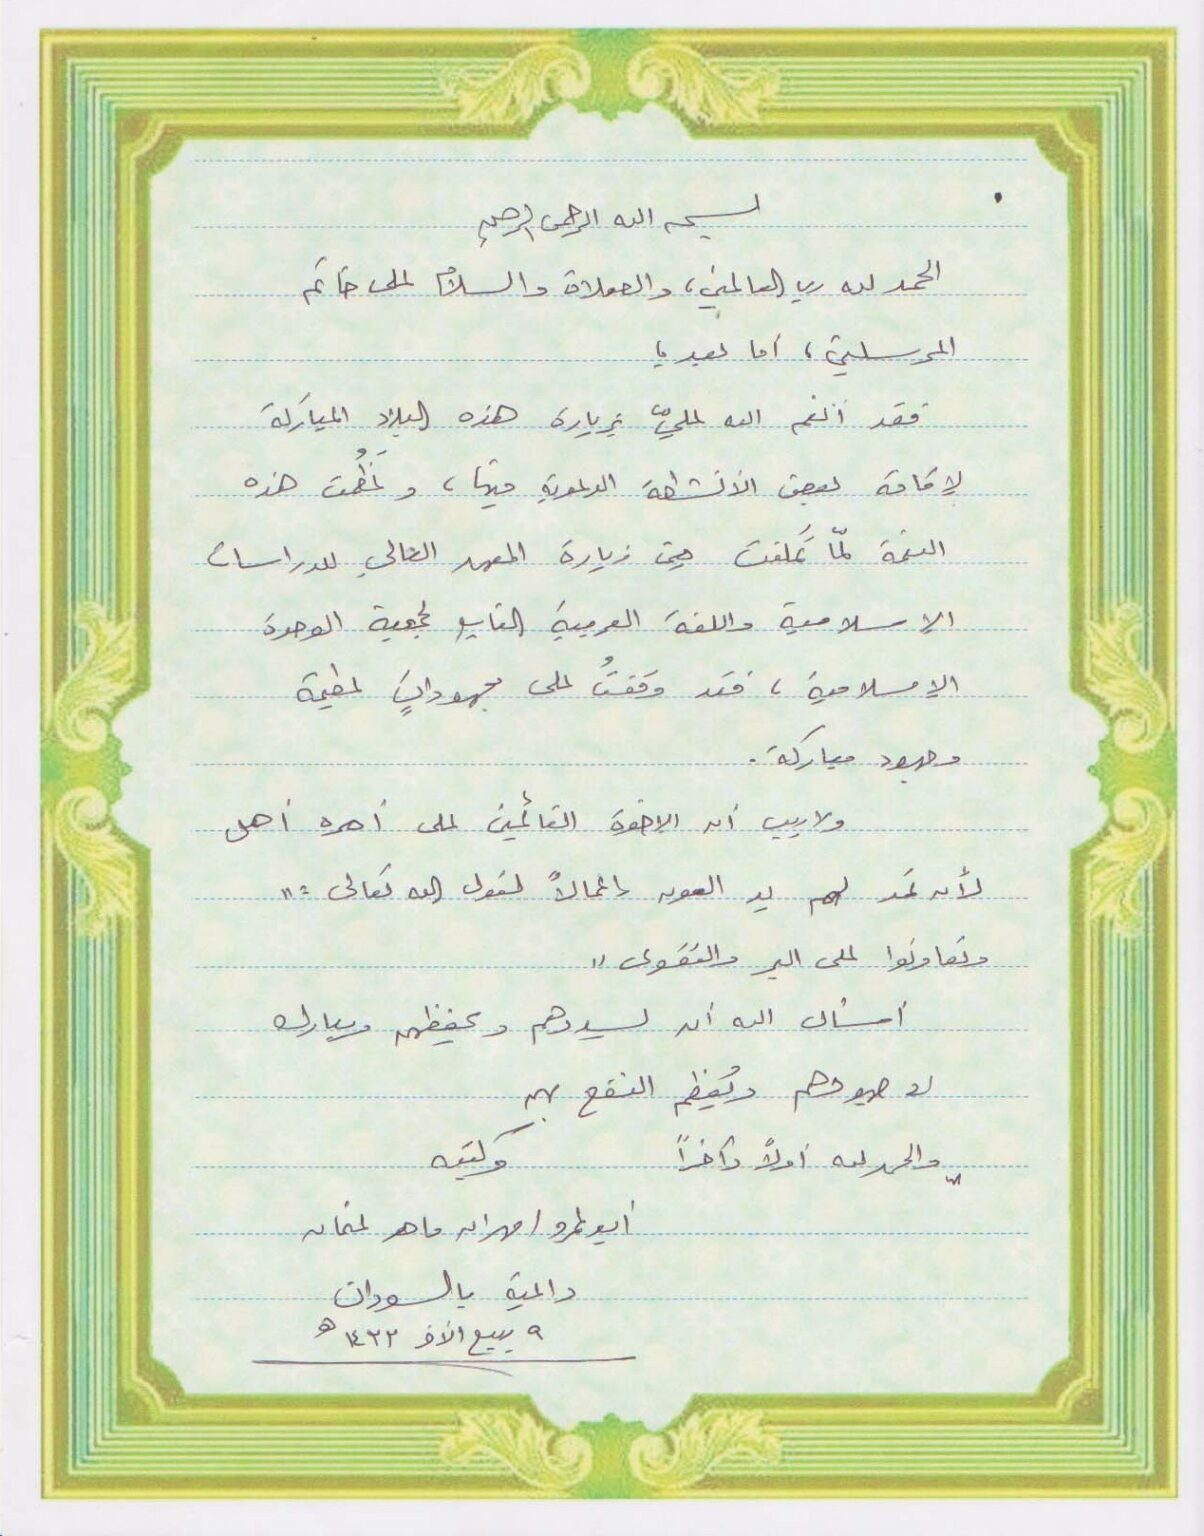 بسم الله الرحمن الرحيم
الحمد لله رب العالمين، والصلاة والسلام على خاتم
المرسلين، أما بعد،،
فقد أنعم الله عليّ بزيارة هذه البلاد المباركة
لإقامة بعض الأنشطة الدعوية فيها، وعَظُمت هذه
النعمة لمّا تمكنت من زيارة المعهد العالي للدراسات
الإسلامية واللغة العربية التابع لجمعية الوحدة
الإسلامية، فقد وقفتُ على مجهوداتٍ عظيمة
وجهود مباركة.
ولا ريب أن الإخوة القائمين على أمره أهل
لأن تمد لهم يد العون إعمالاً لقول الله تعالى: "
وتعاونوا على البر والتقوى "
أسأل الله أن يسددهم ويحفظهم ويبارك
جهودهم ويُعظم النفع بهم
والحمد لله أولاً وآخراً وكتبه
أبو عمرو / مهران ماهر عثمان
داعية بالسودان
٩ ربيع الآخر ١٤٣٢ هـ